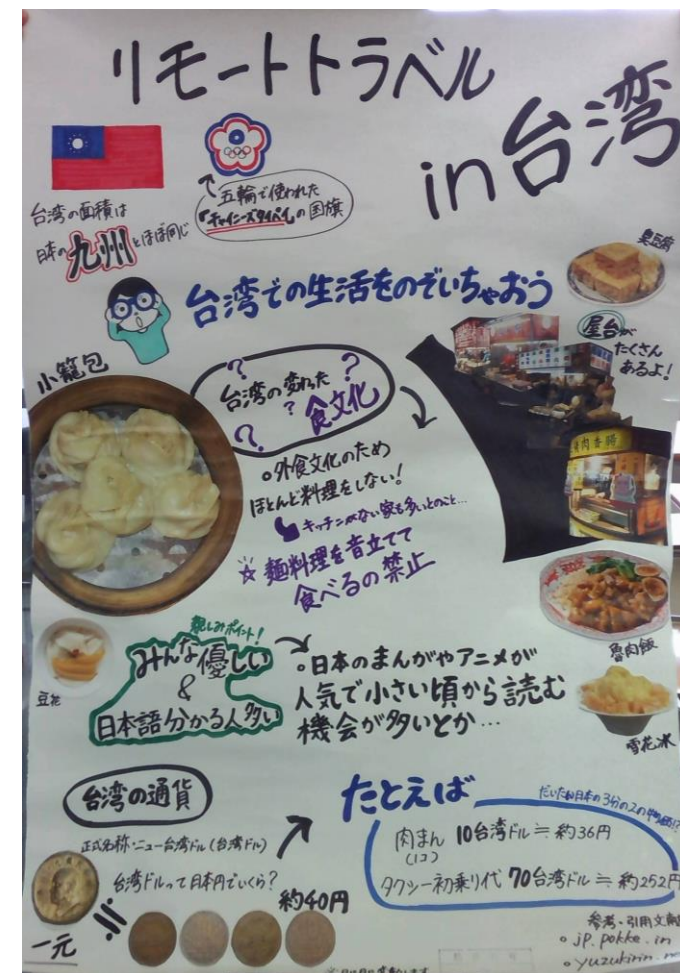 リモートトラベル
in台湾
五輪で使われた
「チャイニーズタイペイ」の国旗
台湾の面積は
日本の九州とほぼ同じ
臭豆腐
台湾での生活をのぞいちゃおう
屋台が
たくさん
あるよ!
小籠包
? ?
台湾の変わった
? 食文化
?
。外食文化のため
ほとんど料理をしない!
キッチンがない家も多いとのこと…
☆麺料理を音立てて
食べるの禁止
肉香腸
魯肉飯
親しみポイント!
みんな優しい
&
日本語分かる人多い
。日本のまんがやアニメが
人気で小さい頃から読む
機会が多いとか…
豆花
雪花冰
台湾の通貨
正式名称・ニュー台湾ドル(台湾ドル)
台湾ドルって日本円でいくら?
約40円
一元
たとえば
だいたい日本の3分の2の
肉まん 10台湾ドル≒約36円
(1コ)
タクシー初乗り代 70台湾ドル≒約252円
参考・引用文献
。jp.pokke.in
。yuzukirin.